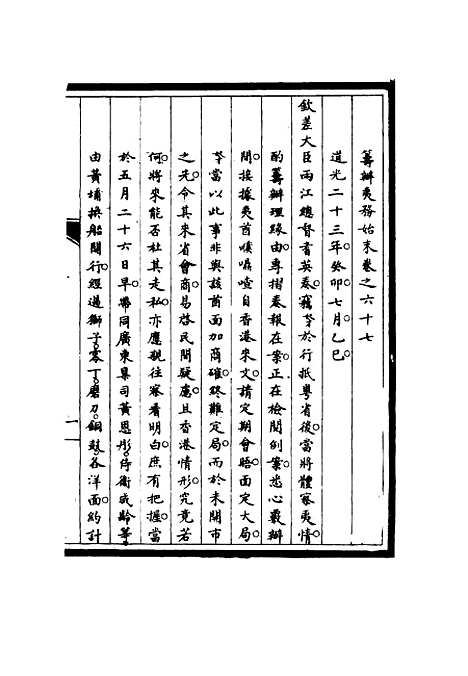 籌辦夷務始末卷之六十七
道光二十三年癸卯七月乙巳
欽差大臣兩江總督耆英奏竊奴才於行抵粵省後當將體察夷情
酌籌辦理緣由專摺奏報在案正在檢閱創案悉心覈辦
間接據夷酋噗嘣喳自香港來文請定期會晤面定大局
奴才當以此事非與該酋面加商確終難定局而於未開市
之先令其來省會商易啓民間疑慮且香港情形究竟若
何將來能否杜其走私亦應親往察看明白庶有把握當
於五月二十六日早帶同廣東臬司黃恩彤侍衛咸齡等
由黃埔換船開行經過獅子零丁磨刀銅鼓各洋面約計